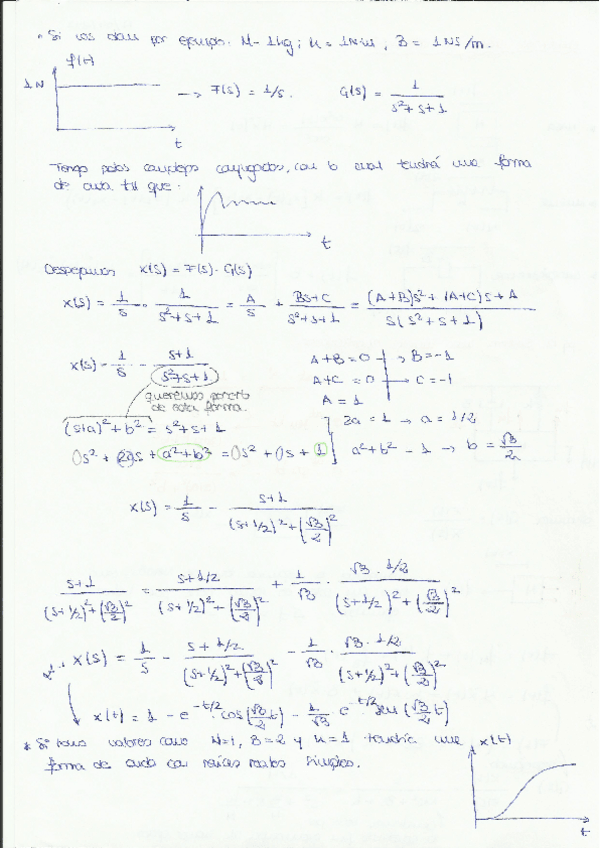 • Si los datos por ejemplo. M = 1kg; K = 1N/m, B = 1NS/m.
f(t)
1N → F(s) = 1/s. G(s) = 1/(s²+s+1)
t
Tengo polos complejos conjugados, con lo cual tendrá una forma
de onda tal que:
t
Despejamos X(s) = F(s)·G(s)
X(s) = 1/s · 1/(s²+s+1) = A/s + (Bs+C)/(s²+s+1) = ((A+B)s² + (A+C)s + A)/(s(s²+s+1))
X(s) = 1/s - (s+1)/(s²+s+1) A+B=0 → B=-1
A+C=0 → C=-1
A=1
queremos ponerlo
de esta forma.
(s+a)²+b² = s²+s+1 2a=1 → a=1/2
s² + 2as + a²+b² = s² + s + 1 a²+b² = 1 → b = √3/2
X(s) = 1/s - (s+1)/((s+1/2)²+(√3/2)²)
(s+1)/((s+1/2)²+(√3/2)²) = (s+1/2)/((s+1/2)²+(√3/2)²) + 1/√3 · (√3·1/2)/((s+1/2)²+(√3/2)²)
X(s) = 1/s - (s+1/2)/((s+1/2)²+(√3/2)²) - 1/√3 · (√3·1/2)/((s+1/2)²+(√3/2)²)
x(t) = 1 - e^(-t/2) · cos(√3/2 t) - 1/√3 e^(-t/2) · sen(√3/2 t)
* Si valores como M=1, B=2 y K=1 tendría una
forma de onda con raíces reales simples.
x(t)
t